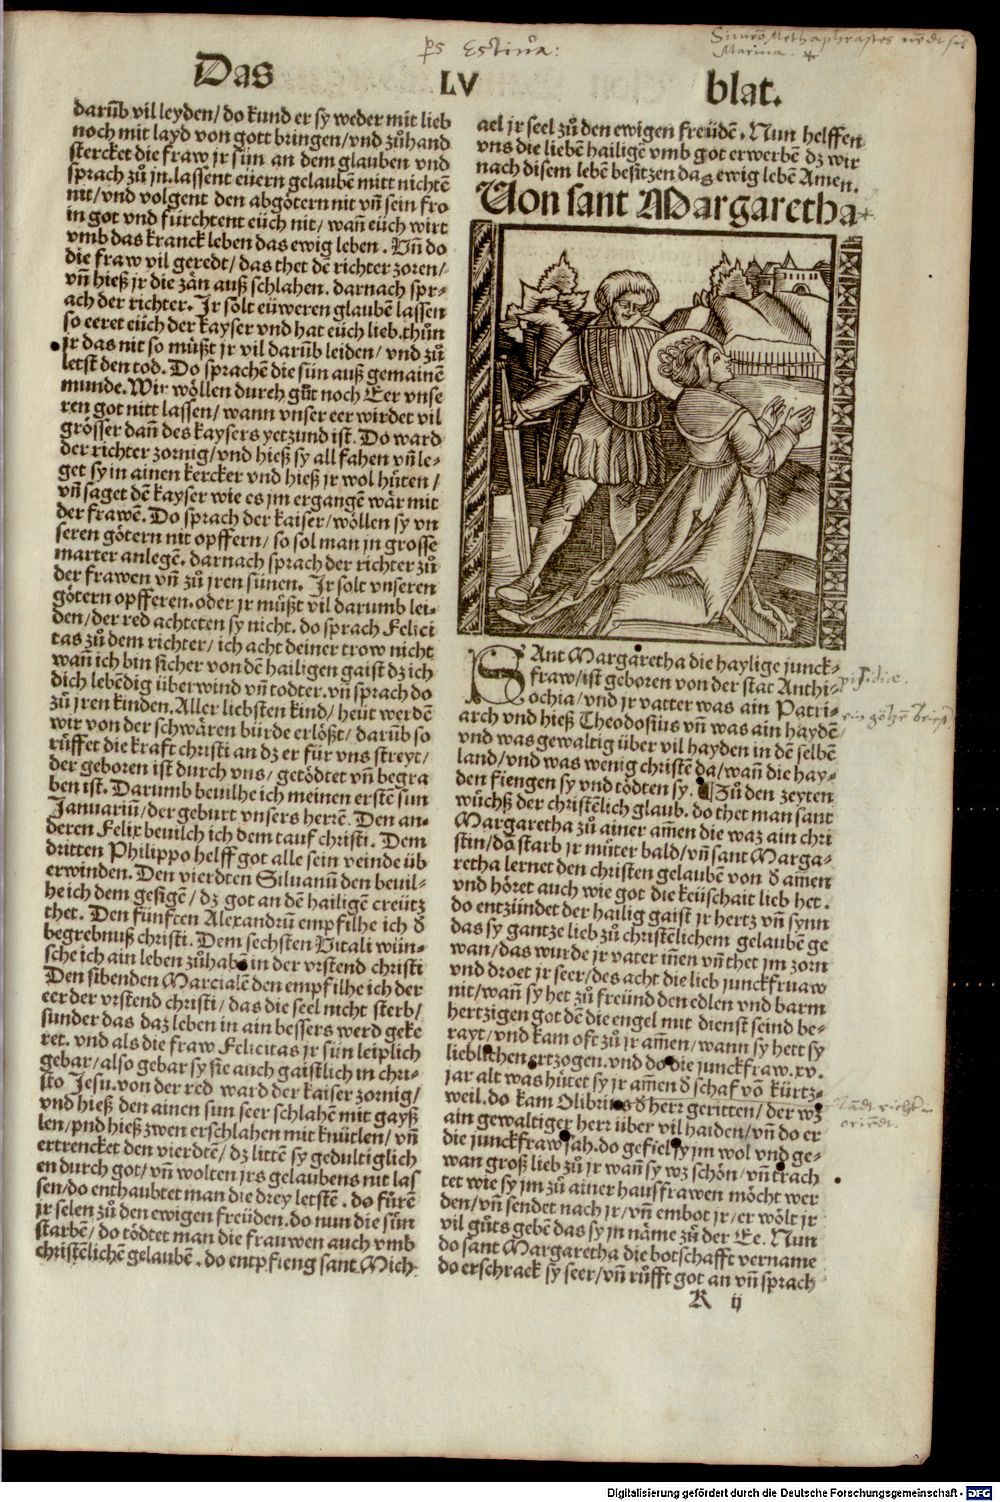 ps Estiua:
Simeō Methaphrastes
Marina. *
Das LV blat.
darūb vil leyden/ do kund er sy weder mit lieb
noch mit layd von gott bringen/vnd zůhand
stercket die fraw jr sün an dem glauben vnd
sprach zů jn. lassent eüern gelaubē mitt nichtē
nit/vnd volgent den abgötern nit vn̄ sein fro
in got vnd fürchtent eüch nit/ wan̄ eüch wirt
vmb das kranck leben das ewig leben. Vn̄ do
die fraw vil geredt/ das thet dē richter zoren/
vn̄ hieß jr die zän auß schlahen. darnach spr-
ach der richter. Ir solt eüweren glaubē lassen
so eeret eüch der kayser vnd hat eüch lieb. thůn
jr das nit so müßt jr vil darūb leiden/ vnd zů
letst den tod. Do sprachē die sün auß gemainē
munde. Wir wöllen durch gůt noch Eer vnse
ren got nitt lassen/ wann vnser eer wirdet vil
grösser dan̄ des kaysers yetzund ist. Do ward
der richter zornig/vnd hieß sy all fahen vn̄ le-
get sy in ainen kercker vnd hieß jr wol hüten/
vn̄ saget dē kayser wie es jm ergangē wär mit
der frawē. Do sprach der kaiser/wöllen sy vn
seren götern nit opffern/ so sol man jn grosse
marter anlegē. darnach sprach der richter zů
der frawen vn̄ zů jren sünen. Ir solt vnseren
götern opfferen. oder jr müßt vil darumb lei-
den/der red achteten sy nicht. do sprach Felici
tas zů dem richter/ ich acht deiner trow nicht
wan̄ ich bin sicher von dē hailigen gaist dz ich
dich lebēdig überwind vn̄ todter. vn̄ sprach do
zů jren kinden. Aller liebsten kind/ heüt werdē
wir von der schwären bürde erlößt/ darūb so
růffet die kraft christi an dz er für vns streyt/
der geboren ist durch vns/ getödtet vn̄ begra
ben ist. Darumb beuilhe ich meinen erstē sun
Januariū/der geburt vnsers herrē. Den an-
deren Felix beuilch ich dem tauf christi. Dem
dritten Philippo helff got alle sein veinde üb
erwinden. Den vierdten Siluanū den beuil-
he ich dem gesigē/ dz got an dē hailigē creütz
thet. Den fünften Alexandrū empfilhe ich ð
begrebnuß christi. Dem sechsten Vitali wün-
sche ich ain leben zůhabē in der vrstend christi
Den sibenden Marcialē den empfilhe ich der
eer der vrstend christi/ das die seel nicht sterb/
sunder das daz leben in ain bessers werd geke
ret. vnd als die fraw Felicitas jr sün leiplich
gebar/also gebar sy sie auch gaistlich in chri-
sto Jesu. von der red ward der kaiser zornig/
vnd hieß den ainen sun seer schlahē mit gayß
len/vnd hieß zwen erschlahen mit knütlen/ vn̄
ertrencket den vierdtē/ dz littē sy gedultiglich
en durch got/vn̄ wolten jrs gelaubens nit las
sen/do enthaubtet man die drey letstē. do fürē
jr selen zů den ewigen freüden. do nun die sün
starbē/ do tödtet man die frauwen auch vmb
christēlichē gelaubē. do entpfieng sant Mich-
ael jr seel zů den ewigen freüdē. Nun helffen
vns die liebē hailigē vmb got erwerbē dz wir
nach disem lebē besitzen das ewig lebē Amen.
Von sant Margaretha
SAnt Margaretha die haylige junck-
fraw/ist geboren von der stat Anthi-
ochia/ vnd jr vatter was ain Patri-
arch vnd hieß Theodosius vn̄ was ain haydē
vnd was gewaltig über vil hayden in dē selbē
land/vnd was wenig christē da/wan̄ die hay-
den fiengen sy vnd tödten sy. ¶Zů den zeyten
wůchß der christēlich glaub. do thet man sant
Margaretha zů ainer am̄en die waz ain chri
stin/da starb jr můter bald/vn̄ sant Marga-
retha lernet den christen gelaubē von ð amen
vnd höret auch wie got die keüschait lieb het.
do entzündet der hailig gaist jr hertz vn̄ synn
das sy gantze lieb zů christēlichem gelaubē ge
wan/das wurde jr vater in̄en vn̄ thet jm zorn
vnd droet jr seer/des acht die lieb junckfruaw
nit/wan̄ sy het zů freünd den edlen vnd barm
hertzigen got dē die engel mit dienst seind be-
rayt/vnd kam oft zů jr am̄en/wann sy hett sy
lieblichen ertzogen. vnd do die junckfraw. xv.
jar alt was hütet sy jr am̄en ð schaf vō kürtz-
weil. do kam Olibrius ð herr geritten/der wz
ain gewaltiger herr über vil haiden/vn̄ do er
die junckfraw sah. do gefiel sy jm wol vnd ge-
wan groß lieb zů jr wan̄ sy wz schön/vn̄ trach
tet wie sy jm zů ainer hausfrawen möcht wer
den/vn̄ sendet nach jr/vn̄ embot jr/er wölt jr
vil gůts gebē das sy jn näme zů der Ee. Nun
do sant Margaretha die botschafft vername
do erschrack sy seer/vn̄ růfft got an vn̄ sprach
K ij
Digitalisierung gefördert durch die Deutsche Forschungsgemeinschaft - DFG